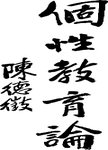 個性教育論
陳德徵